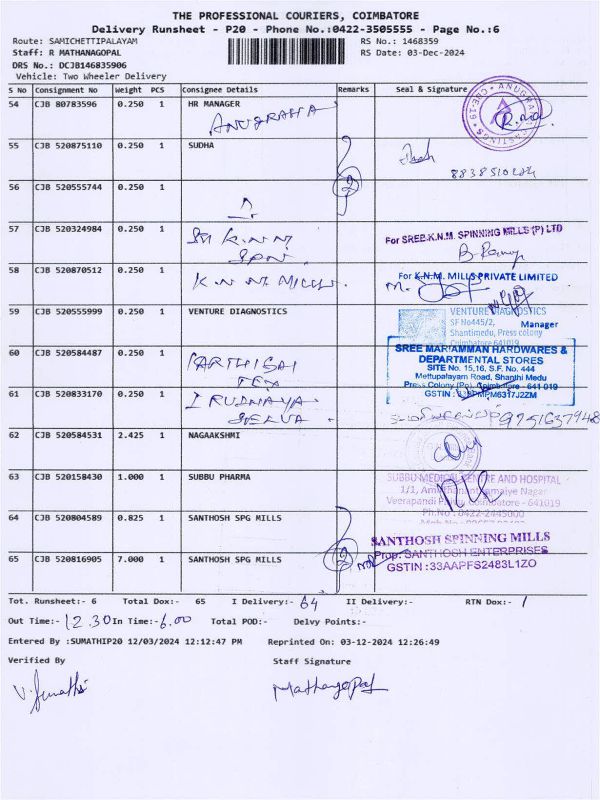 THE PROFESSIONAL COURIERS, COIMBATORE
Delivery Runsheet - P20 - Phone No.:0422-3505555 - Page No.:6
Route: SAMICHETTIPALAYAM
RS No.: 1468359
Staff: R MATHANAGOPAL
RS Date: 03-Dec-2024
DRS No.: DCJB146835906
Vehicle: Two Wheeler Delivery
S No Consignment No Weight PCS Consignee Details Remarks Seal & Signature
54 CJB 80783596 0.250 1 HR MANAGER
ANUGRAHA
55 CJB 520875110 0.250 1 SUDHA
56 CJB 520555744 0.250 1
57 CJB 520324984 0.250 1 Sri K.N.M
For SREE.K.N.M. SPINNING MILLS (P) LTD
58 CJB 520870512 0.250 1 K.N.M. Mills.
For K.N.M. MILLS PRIVATE LIMITED
59 CJB 520555999 0.250 1 VENTURE DIAGNOSTICS
VENTURE DIAGNOSTICS
SF No445/2,
Manager
Shantimedu, Press colony
Coimbatore 641019
60 CJB 520584487 0.250 1 KARTHI SAI
TEX
SREE MARIAMMAN HARDWARES &
DEPARTMENTAL STORES
SITE No. 15,16, S.F. No. 444
Mettupalayam Road, Shanthi Medu
Press Colony (Po), Coimbatore - 641 019
61 CJB 520833170 0.250 1 IRUDHAYA
SELVA
9751637948
62 CJB 520584531 2.425 1 NAGAAKSHMI
63 CJB 520158430 1.000 1 SUBBU PHARMA
SUBBU MEDICAL CENTRE AND HOSPITAL
Veerapandi Coimbatore - 641019
Ph.No : 0422-2445800
64 CJB 520804589 0.825 1 SANTHOSH SPG MILLS
SANTHOSH SPINNING MILLS
Prop: SANTHOSH ENTERPRISES
GSTIN :33AAPFS2483L1ZO
65 CJB 520816905 7.000 1 SANTHOSH SPG MILLS
Tot. Runsheet:- 6 Total Dox:- 65 I Delivery:- 64 II Delivery:- RTN Dox:- 1
Out Time:- 12.30 In Time:- 6.00 Total POD:- Delvy Points:-
Entered By :SUMATHIP20 12/03/2024 12:12:47 PM Reprinted On: 03-12-2024 12:26:49
Verified By Staff Signature
V. Sumathi Mathanagopal